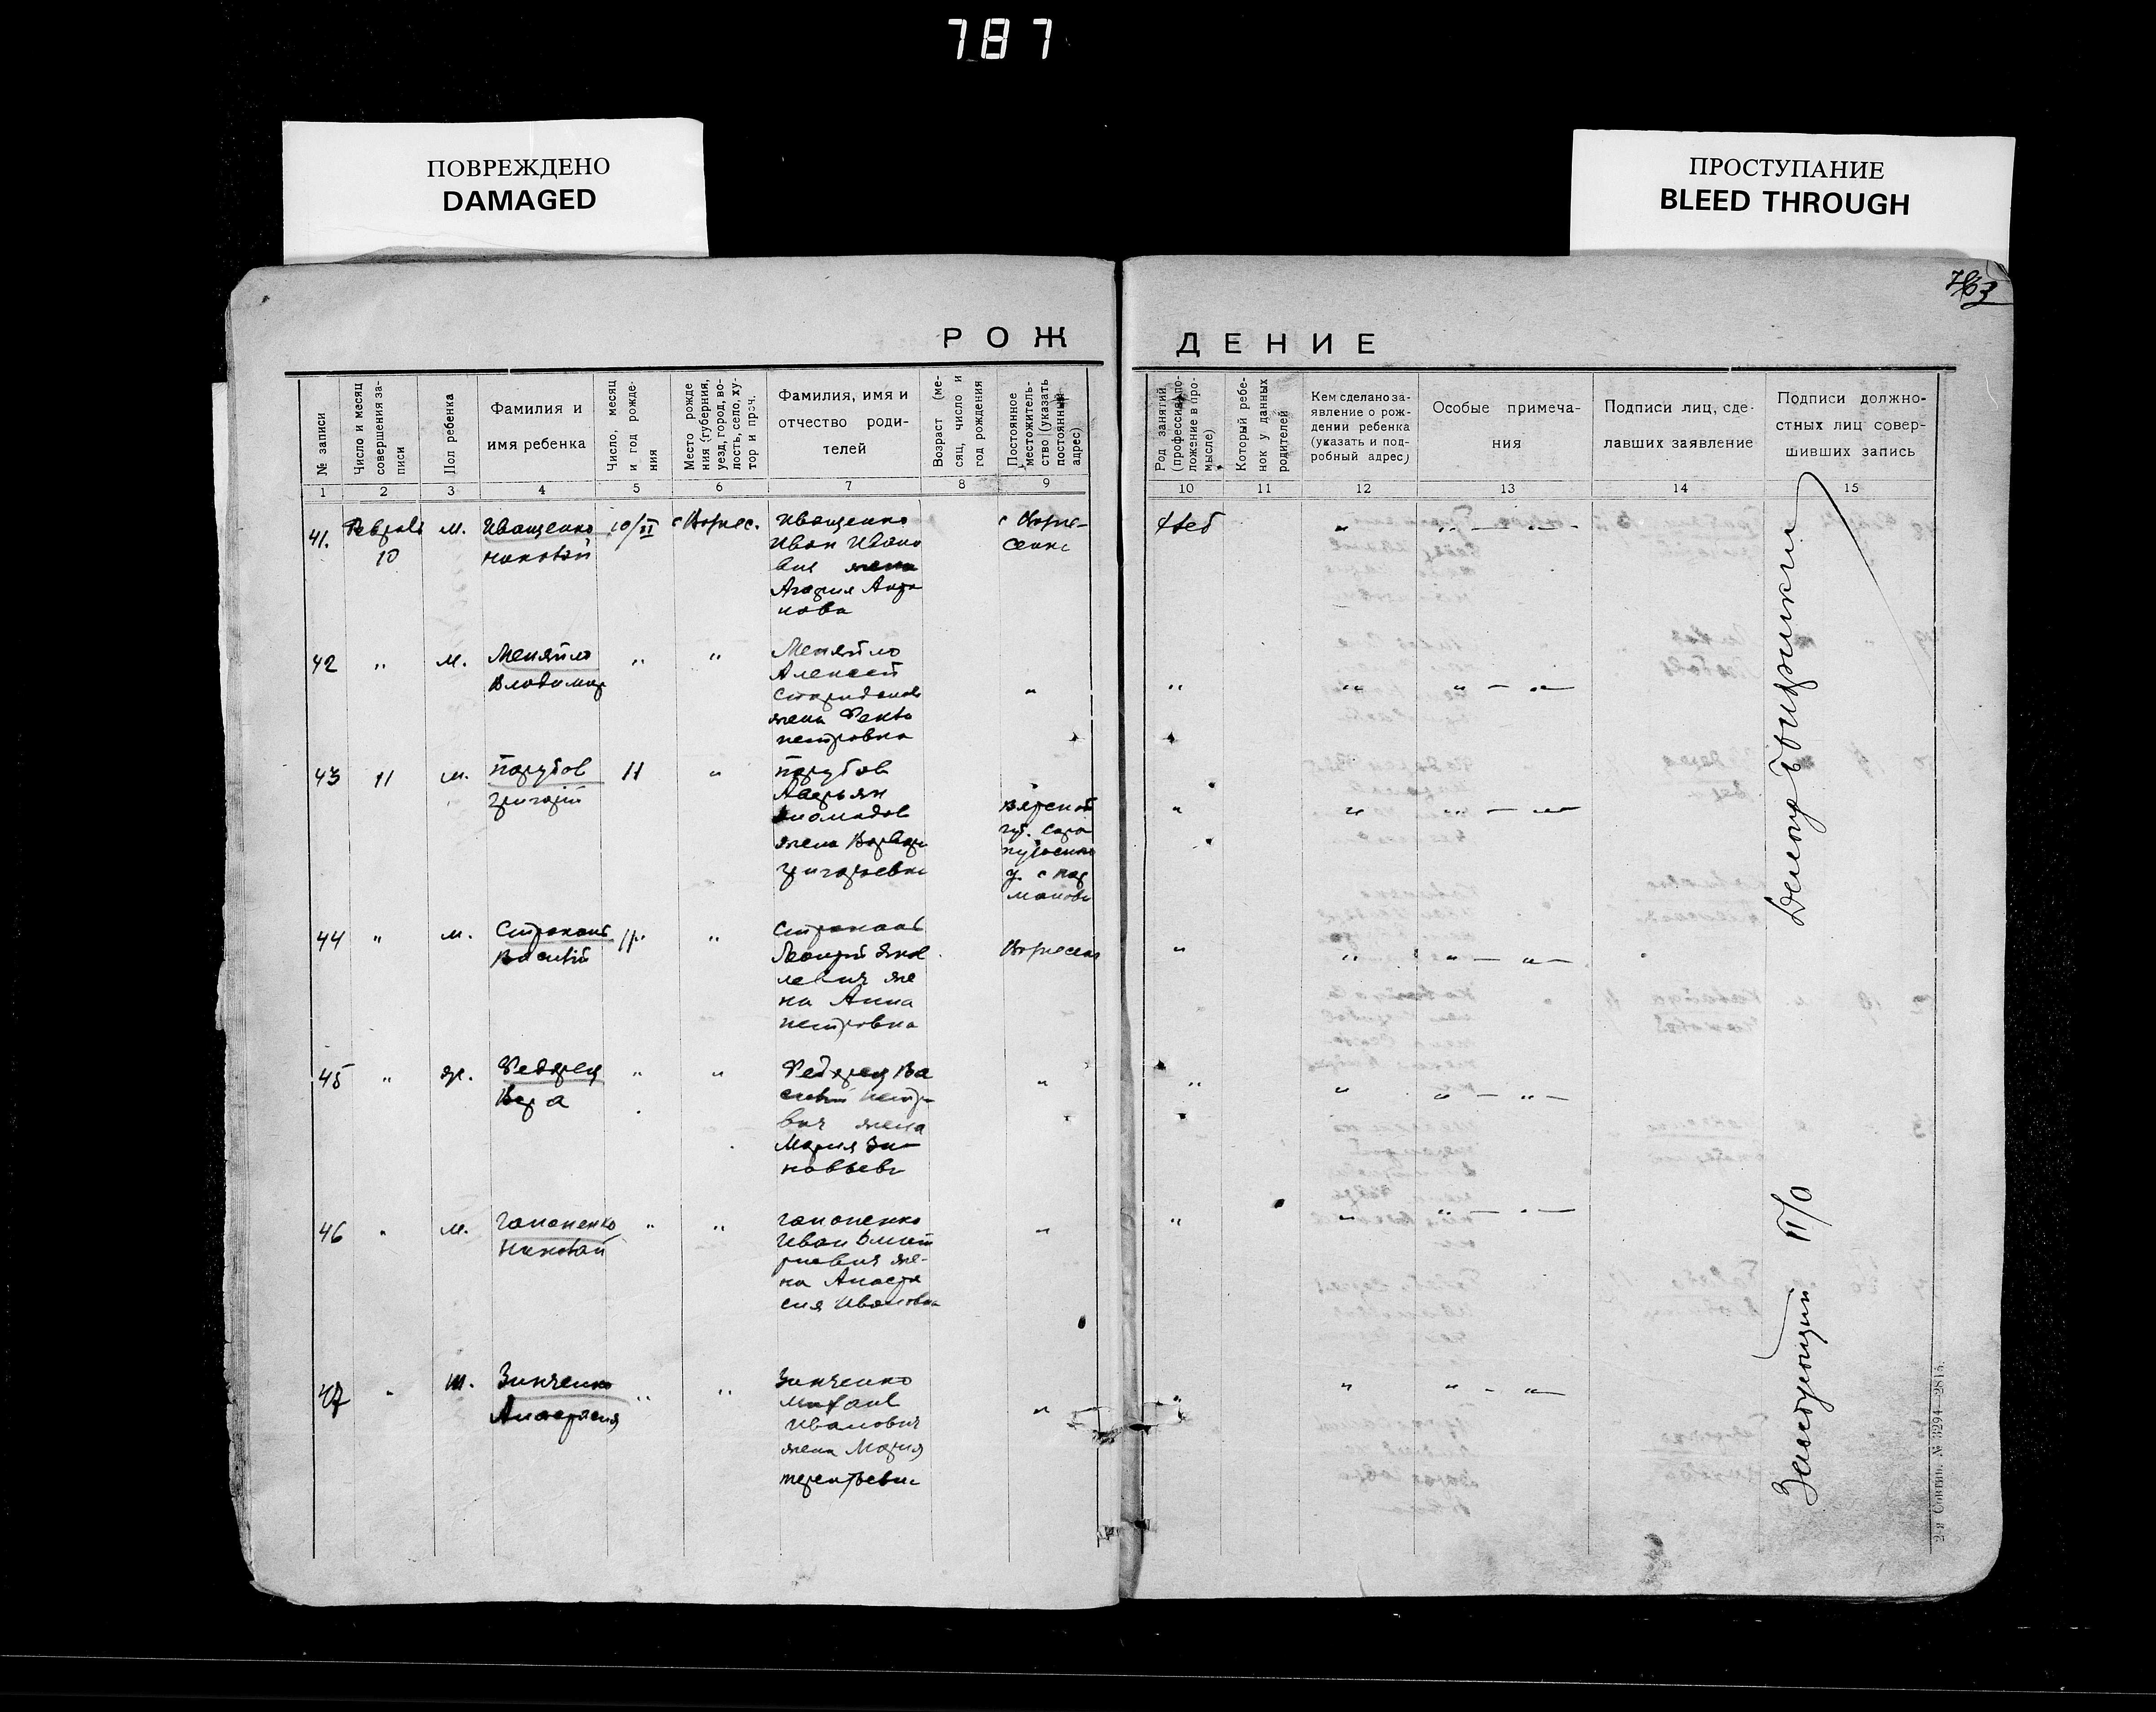 787
ПОВРЕЖДЕНО
DAMAGED
ПРОСТУПАНИЕ
BLEED THROUGH
РОЖ
ДЕНИЕ
№ записи
Число и месяц
совершения за-
писи
Пол ребенка
Фамилия и
имя ребенка
Число, месяц
и год рожде-
ния
Место рожде
ния (губерния,
уезд, город, во-
лость, село, ху-
тор и проч.
Фамилия, имя и
отчество роди-
телей
Возраст (ме-
сяц, число и
год рождения
Постоянное
местожитель-
ство (указать
постоянный
адрес)
Род занятий
(профессия, по-
ложение в про-
мысле)
Который ребе-
нок у данных
родителей
Кем сделано за-
явление о рож-
дении ребенка
(указать и под-
робный адрес)
Особые примеча-
ния
Подписи лиц, сде-
лавших заявление
Подписи должно-
стных лиц совер-
шивших запись
1 2 3 4 5 6 7 8 9 10 11 12 13 14 15
41. 10 м. Иващенко 10/II с Вознес.
Николай
Иващенко
Иван Ивано
вич жена
Агафия
нова
с Возне-
сенка
Хлеб " " — " —
42 " м. Меняйло " "
Владимир
Меняйло
Алексей
жена
петровна
" " " " — " —
43 11 м. Порубов 11 "
Григорий
Порубов
Аверьян
жена Варвар
григорьевна
Вятской
губ. Сара
пульского
у. с
" " " — " —
44 " м. 11 "
Василий
жена
на Анна
петровна
Вознесенк
" " " — " —
45 " ж. Федорец " "
Вера
Федорец Ва
силий петро
вич жена
Мария Зи-
новьевн
" " " " — " —
46 " м. Гапоненко " "
Николай
Гапоненко
Иван Дмит
риевич же-
на Анаста
сия Ивановна
" " " " — " —
47 " ж. Зинченко " "
Анастасия
Зинченко
Михаил
Иванович
жена Мария
терентьевн
" " " " — " —
Заведующий П/О
2-я Совтип. № 3294—281